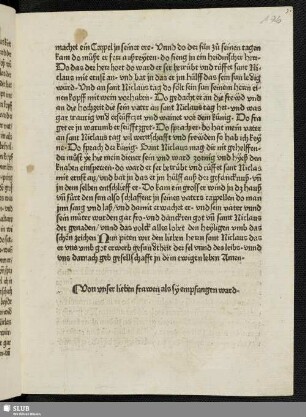 machet ein Cappel jn seiner ere· Vnnd do der sun zů seinen tagen
kam do můst er sein auszreyten· do fieng in ein heidnischer herr·
Do das der herr hort do ward er ser betrübt vnd rüffet sant Nic
laus mit ernst an· vnd bat jn das er jm hülff das sein sun ledig
würd· Vnd an sant Niclaus tag do solt sein sun seinem herrn ei
nen kopff mit wein vorhaben· Do gedacht er an die freüd vnd
an die hochzeit die sein vater an sant Niclaus tag het· vnd was
gar traurig vnd ersüfftzet vnd wainet vor dem künig· Do fra
get er jn warumb er seüfftzet· Do sprach er· do hat mein vater
an sant Niclaus tag all wirtschafft vnd freüden so hab ich keyn
ne· Do sprach der künig· Dann Niclaus mag dir nit gehelffen·
du můst ye hie mein diener sein vnd ward zornig vnd hiesz den
knaben einsperren· do ward er ser betrübt vnd rüffet sant Niclaus
mit ernst an· vnd bat jn das er jm hülff ausz der gefäncknusz· vnd
jn dem selben entschlieff er· Do kam ein grosser wind jn das hausz
vnd fürt den sun also schlaffent jn seines vaters cappellen do man
jnn sang vnd lasz· vnd damit erwachet er· vnd sein vater vnnd
sein můter wurden gar fro· vnd danckten got vnd sant Niclaus
der genaden· vnnd das volck alles lobet den heyligen vmb das
schön zeichen Nun piten wir den lieben herrn sant Niclaus das
er vns vmb got erwerb gesuntheit der sel vnnd des leibs· vnd
vns darnach geb gesellschafft jn dem ewigen leben Amen·
Von vnser lieben frawen als sy empfangen ward·
SLUB